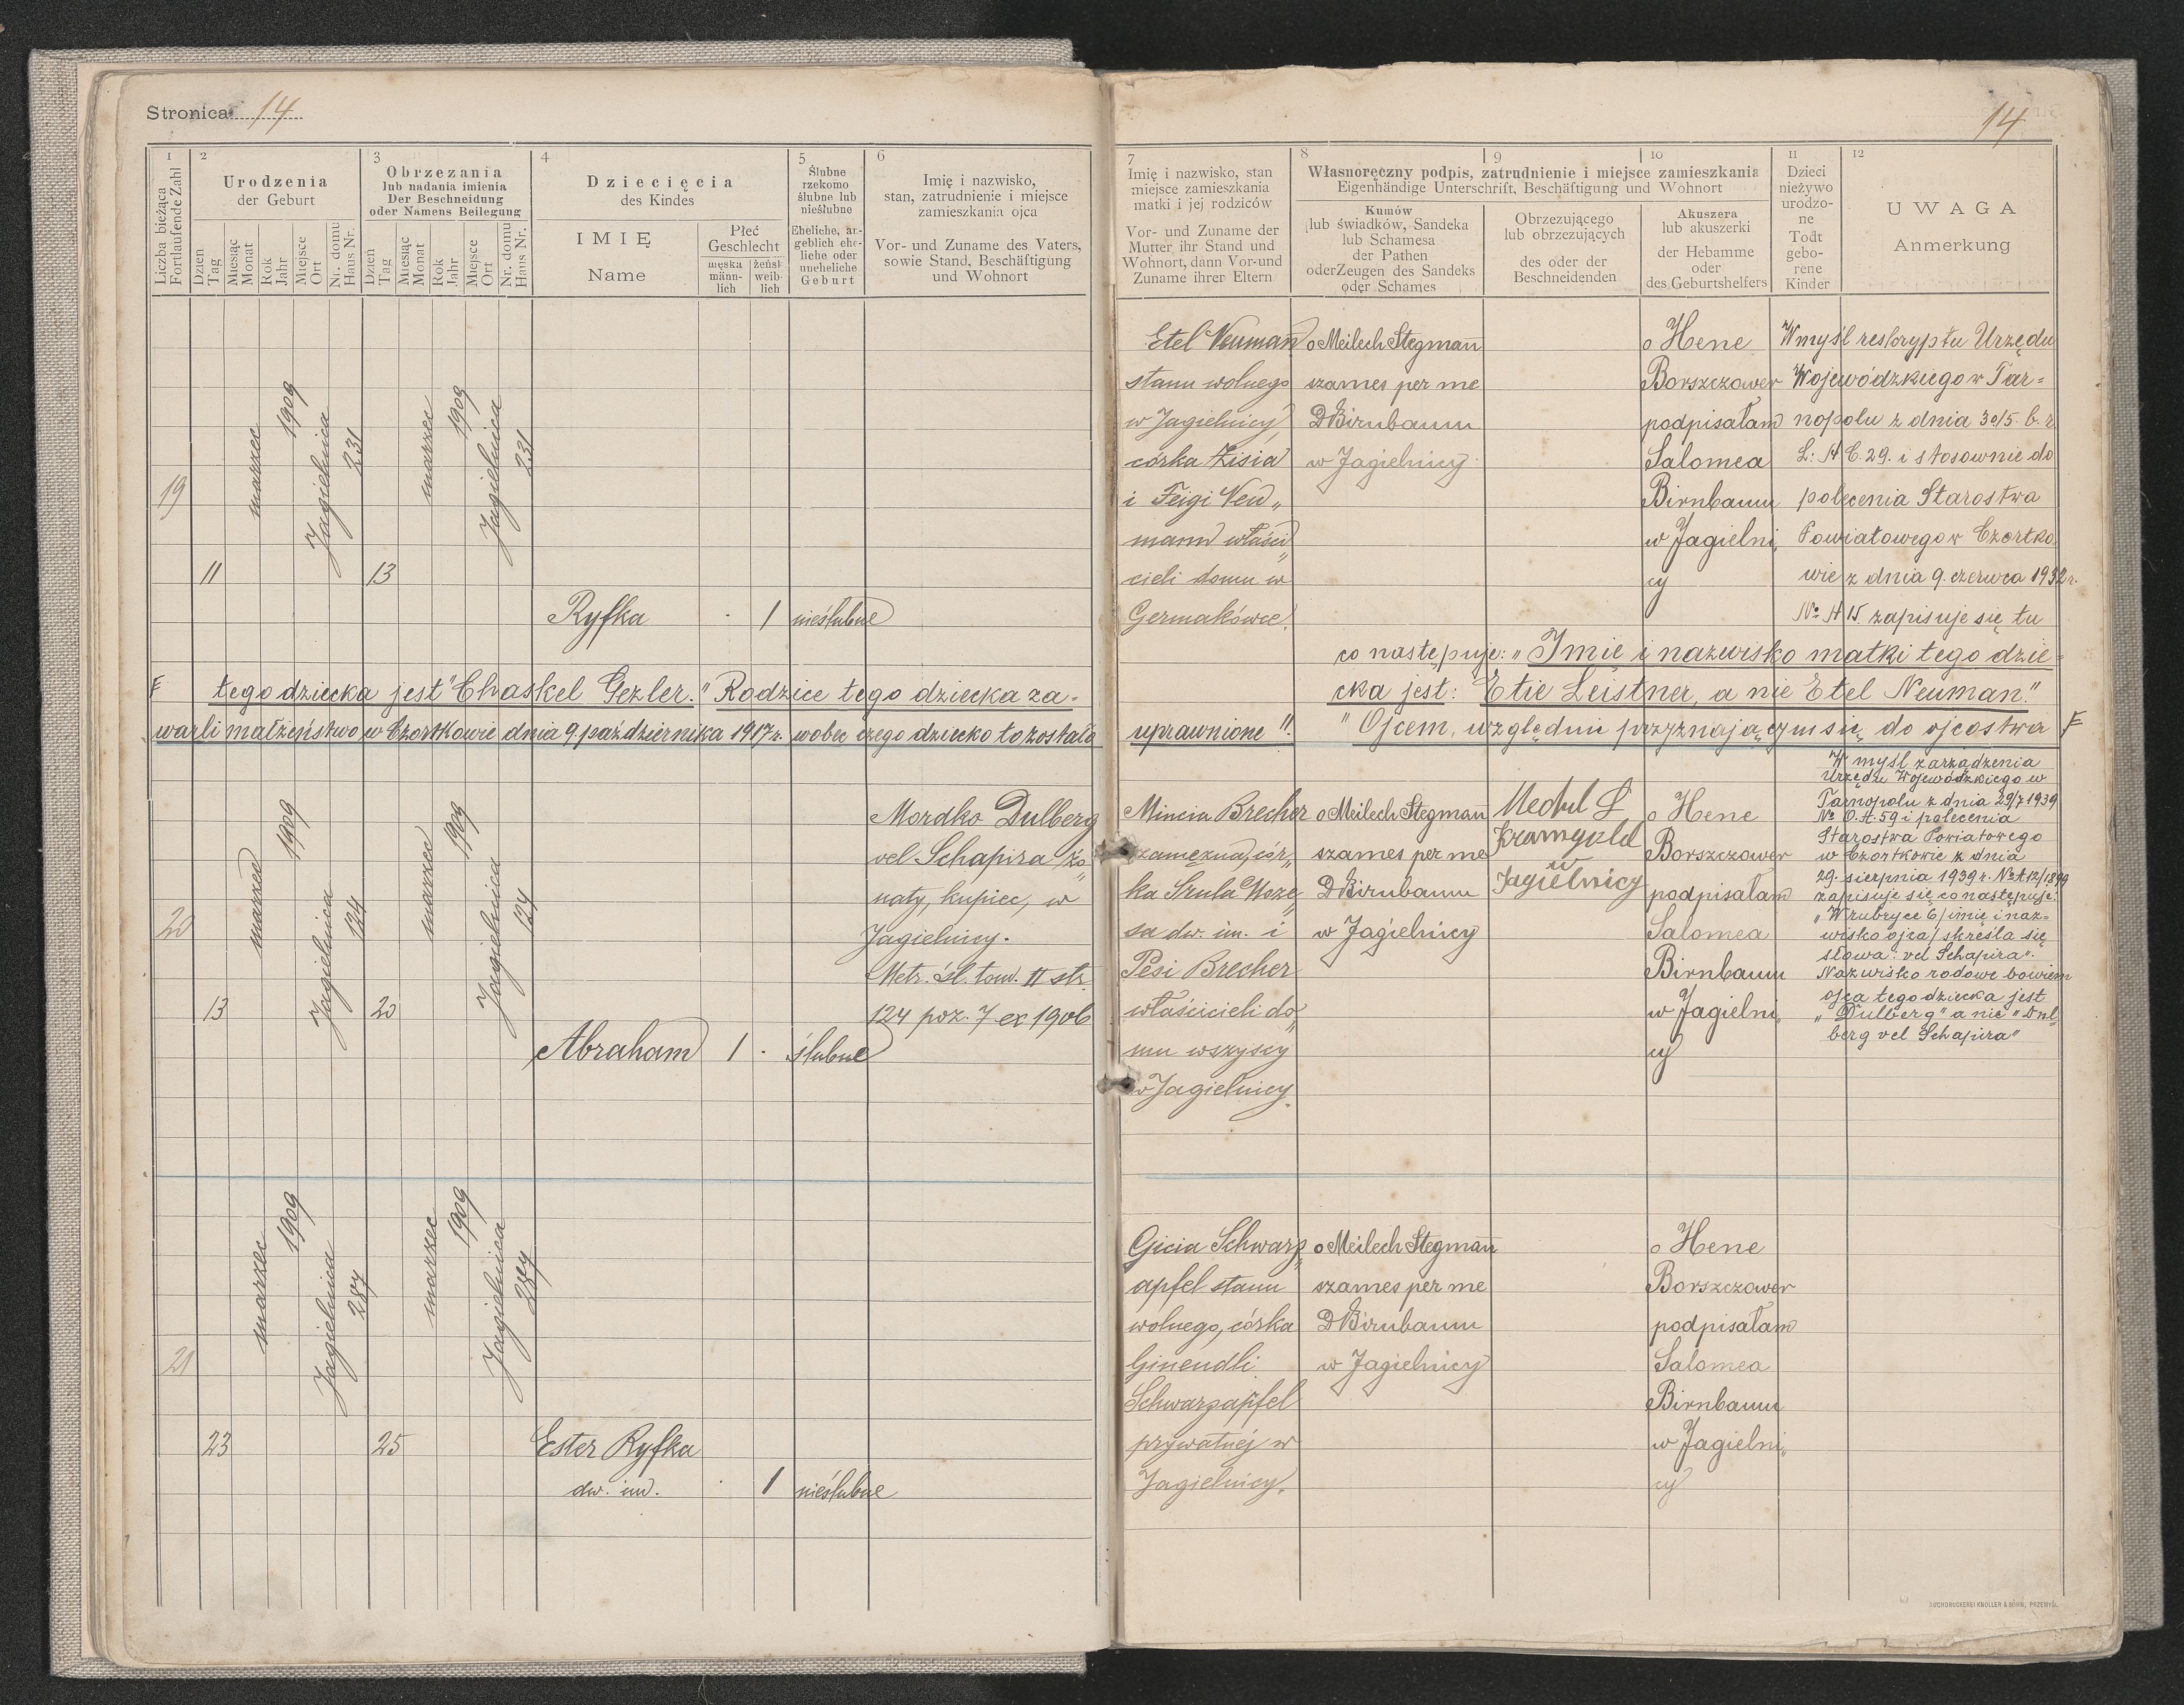 Stronica 14
14
1
Liczba bieżąca
Fortlaufende Zahl
2
Urodzenia
der Geburt
Dzień
Tag
Miesiąc
Monat
Rok
Jahr
Miejsce
Ort
Nr. domu
Haus Nr.
3
Obrzezania
lub nadania imienia
Der Beschneidung
oder Namens Beilegung
Dzień
Tag
Miesiąc
Monat
Rok
Jahr
Miejsce
Ort
Nr. domu
Haus Nr.
4
Dziecięcia
des Kindes
IMIĘ
Name
Płeć
Geschlecht
męska
männ-
lich
żeńsk
weib-
lich
5
Ślubne
rzekomo
ślubne lub
nieślubne
Eheliche, an-
geblich ehe-
liche oder
uneheliche
Geburt
6
Imię i nazwisko,
stan, zatrudnienie i miejsce
zamieszkania ojca
Vor- und Zuname des Vaters,
sowie Stand, Beschäftigung
und Wohnort
7
Imię i nazwisko, stan
miejsce zamieszkania
matki i jej rodziców
Vor- und Zuname der
Mutter, ihr Stand und
Wohnort, dann Vor-und
Zuname ihrer Eltern
8
9
10
Własnoręczny podpis, zatrudnienie i miejsce zamieszkania
Eigenhändige Unterschrift, Beschäftigung und Wohnort
Kumów
lub świadków, Sandeka
lub Schamesa
der Pathen
oder Zeugen des Sandeks
oder Schames
Obrzezującego
lub obrzezujących
des oder der
Beschneidenden
Akuszera
lub akuszerki
der Hebamme
oder
des Geburtshelfers
11
Dzieci
nieżywo
urodzo-
ne
Todt
gebo-
rene
Kinder
12
UWAGA
Anmerkung
19
11
marzec
1909
Jagielnica
231
13
marzec
1909
Jagielnica
231
Ryfka
·
1
nieślubne
Etel Neumañ
stanu wolnego
w Jagielnicy,
córka Zisia
i Feigi Neu„
mann właści„
cieli domu w
Germakówce.
o Meilech Stegmañ
szames per me
D Birnbaum
w Jagielnicy
o Hene
Borszczower
podpisałam
Salomea
Birnbaum
w Jagielni„
cy
W myśl reskryptu Urzędu
Wojewódzkiego w Tar=
nopolu z dnia 30/5. b. r.
L: A C. 29. i stosownie do
polecenia Starostwa
Powiatowego w Czortko
wie z dnia 9. czerwca 1932 r.
No A 15 zapisuje się tu
co następuje: „Imię i nazwisko matki tego dzie=
cka jest: Etie Leistner, a nie Etel Neuman."
"Ojcem, względnie przyznającym się do ojcostwa F
F tego dziecka jest "Chaskel Gezler." Rodzice tego dziecka za-
warli małżeństwo w Czortkowie dnia 9 października 1917 r. wobec czego dziecko to zostało
uprawnione".
20
13
marzec
1909
Jagielnica
124
20
marzec
1909
Jagielnica
124
Abraham
1
·
ślubne
Mordko Dulberg
vel Schapira żo„
naty, kupiec, w
Jagielnicy.
Metr. śl. tom. II str.
124 poz. 7 ex 1906
Mincia Brecher
zamężna, cór„
ka Srula Moze„
sa dw. im. i
Pesi Brecher
właścicieli do„
mu wszyscy
w Jagielnicy.
o Meilech Stegmañ
szames per me
D Birnbaum
w Jagielnicy
w
Jagielnicy
o Hene
Borszczower
podpisałam
Salomea
Birnbaum
w Jagielni„
cy
W myśl zarządzenia
Urzędu Wojewódzkiego w
Tarnopolu z dnia 29/7 1939
No O.A.59 i polecenia
Starostwa Powiatowego
w Czortkowie z dnia
29. sierpnia 1939 r. No A 12/1899
zapisuje się co następuje:
„W rubryce 6/imię i naz=
wisko ojca/ skreśla się
słowa: vel Schapira".
Nazwisko rodowe bowiem
ojca tego dziecka jest
„Dulberg" a nie "Dul
berg vel Schapira"
21
23
marzec
1909
Jagielnica
287
25
marzec
1909
Jagielnica
287
Ester Ryfka
dw. im.
·
1
nieślubne
Gicia Schwarz„
apfel stanu
wolnego, córka
Ginendli
Schwarzapfel
prywatnéj w
Jagielnicy.
o Meilech Stegmañ
szames per me
D Birnbaum
w Jagielnicy
o Hene
Borszczower
podpisałam
Salomea
Birnbaum
w Jagielni„
cy
BUCHDRUCKEREI KNOLLER & SOHN, PRZEMYŚL